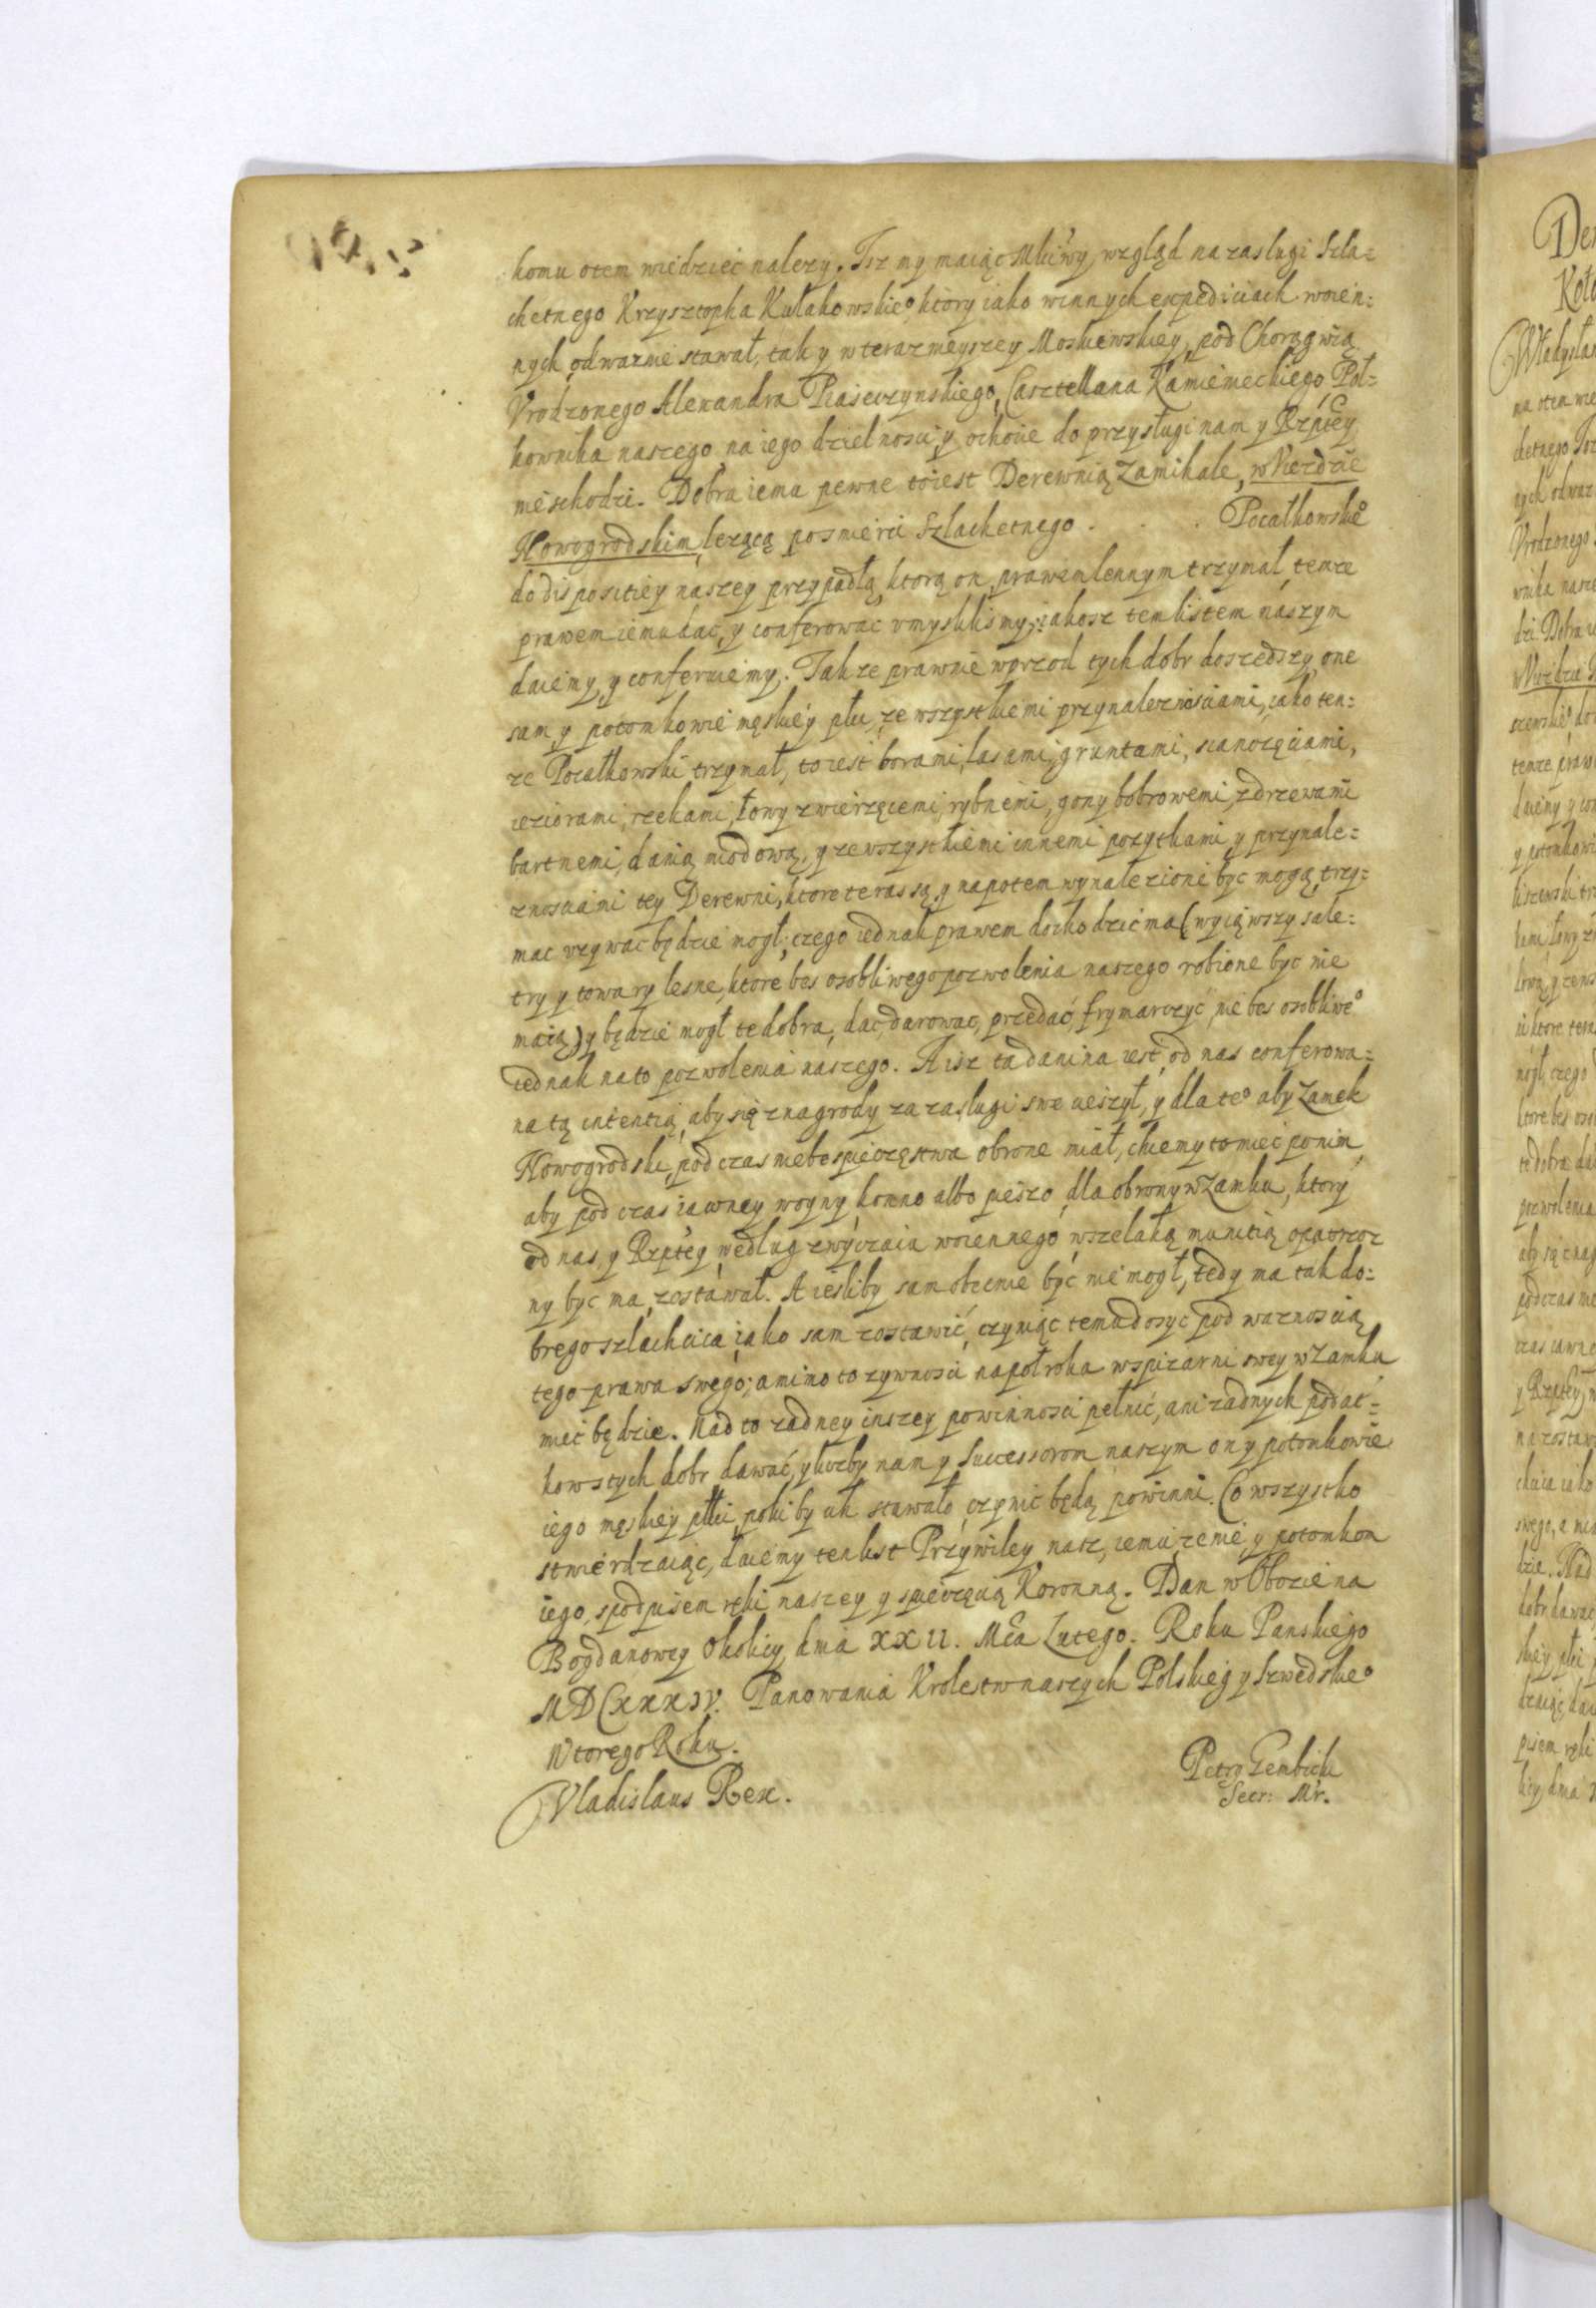 komu otem wiedziec nalezy. Isz my maiąc Mściwy wzgląd na zasługi Szla=
chetnego Krzysztopha Kułakowskie° ktory iako w innych expediciach woien=
nych odwaznie stawał, tak y w terazneyszey Moskiewskiey, pod Chorągwią
Vrodzonego Alexandra Piaseczynskiego, Casztellana Kamienieckiego, Puł=
kownika naszego, na iego dzielnosci, y ochocie do przysługi nam y Rzptey
nie schodzi. Dobra iema pewne toiest Derewnią Zamihale, w Viezdzie
Nowogrodskim, lezącą po smierci Szlachetnego . . . Pocałkowskie°
do dispositiey naszey przypadłą, ktorą on prawem lennym trzymał, tenze
prawem iemu dac, y conferowac vmyslilismy, iakosz tem listem naszym
daiemy, y conferuiemy. Takze prawnie wprzod tych dobr doszedszy, one
sam y potomkowie męskiey płci, ze wszystkiemi przynaleznosciami, iako ten=
ze Pocałkowski trzymał, to iest borami, lasami, gruntami, sianozęciami,
ieziorami, rzekami, łowy zwierzęcemi, rybnemi, gony bobrowemi, z drzewami
bartnemi, danią miodową, y ze wszystkiemi innemi pozytkami y przynale=
znosciami tey Derewni, ktore teras są, y napotem wynalezioni byc mogą, trzy=
mac vzywac będzie mogł, czego iednak prawem dochodzić ma (wyiąwszy sale=
try y towary lesne, ktore bes osobliwego pozwolenia naszego robione byc nie
maią) y będzie mogł te dobra, dac, darowac, przedać, frymarczyć, nie bes osobliwe°
iednak na to pozwolenia naszego. A isz ta danina iest, od nas conferowa=
na tą intentią, aby się z nagrody za zasługi swe cieszył, y dla te° aby Zamek
Nowogrodski, pod czas niebespieczęstwa obrone miał, chcemy to miec po nim,
aby pod czas iawney woyny, konno albo pieszo, dla obrony w Zamku, ktory
od nas, y Rzptey według zwyczaiu woiennego, wszelaką munitią opatrzo=
ny byc ma, zostawał. A iesliby sam obecnie być nie mogł, tedy ma tak do=
brego szlachcica, iako sam zostawić, czyniąc temu dosyc pod waznoscią
tego prawa swego; a mimo to zywnosci na poł roka w spizarni swey w Zamku
mieć będzie. Nad to zadney inszey powinnosci pełnić, ani zadnych podat=
kow s tych dobr dawać, y liczby nam y Successorom naszym on y potomkowie
iego męskiey płci, poki by ich stawało, czynić będą powinni. Co wszystko
stwierdzaiąc, daiemy ten list Przywiley nasz, iemu, zenie, y potomkom
iego, s podpisem ręki naszey y s pieczęcią Koronną. Dan w Obozie na
Bogdanowey Okolicy, dnia XXII. Mca Lutego. Roku Panskiego
MDCXXXIV. Panowania Krolestw naszych Polskieg y Szwedskie°
Wtorego Roku.
Vladislaus Rex.
Petrg Gembicki
Secr: Mr.